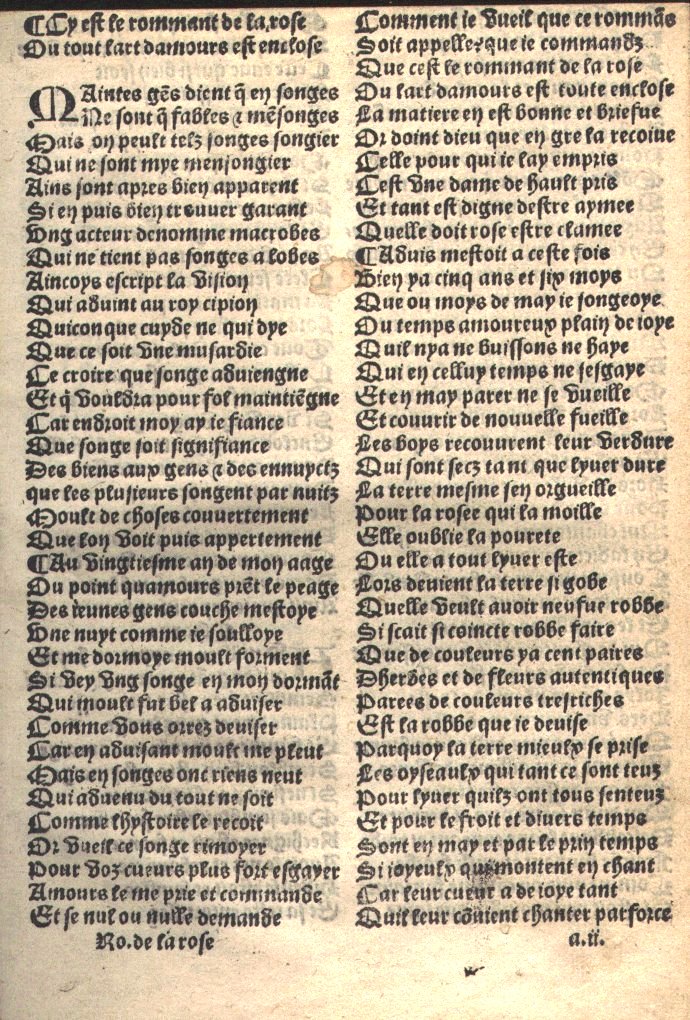 ⁋Cy est le rommant de la rose
Ou tout lart damours est enclose
MAintes gẽs dient q̃ en songes
Ne sont q̃ fables ⁊ mẽsonges
Mais on peult telz songes songier
Qui ne sont mye mensongier
Ains sont apres bien apparent
Si en puis bien trouuer garant
Vng acteur denomme macrobes
Qui ne tient pas songes a lobes
Aincoys escript la vision
Qui aduint au roy cipion
Quiconque cuyde ne qui dye
Que ce soit vne musardie
Ce croire que songe aduiengne
Et q̃ vouldra pour fol maintiẽgne
Car endroit moy ay ie fiance
Que songe soit signifiance
Des biens aux gens ⁊ des ennuyctz
que les plusieurs songent par nuitz
Moult de choses couuertement
Que lon voit puis appertement
⁋Au vingtiesme an de mon aage
Ou point quamours prẽt le peage
Des ieunes gens couche mestoye
Vne nuyt comme ie soulloye
Et me dormoye moult forment
Si vey vng songe en mon dormãt
Qui moult fut bel a aduiser
Comme vous orrez deuiser
Car en aduisant moult me pleut
Mais en songes onc riens neut
Qui aduenu du tout ne soit
Comme lhystoire le recoit
Or vueil ce songe rimoyer
Pour voz cueurs plus fort esgayer
Amours le me prie et commande
Et se nul ou nulle demande
Ro. de la rose
Comment ie vueil que ce rommãs
Soit appelle: que ie commandz
Que cest le rommant de la rose
Ou lart damours est toute enclose
La matiere en est bonne et briefue
Or doint dieu que en gre la recoiue
Celle pour qui ie lay empris
Cest vne dame de hault pris
Et tant est digne destre aymee
Quelle doit rose estre clamee
⁋Aduis mestoit a ceste fois
Bien ya cinq ans et six moys
Que ou moys de may ie songeoye
Ou temps amoureux plain de ioye
Quil nya ne buissons ne haye
Qui en celluy temps ne sesgaye
Et en may parer ne se vueille
Et couurir de nouuelle fueille
Les boys recouurent leur verdure
Qui sont secz tant que lyuer dure
La terre mesme sen orgueille
Pour la rosee qui la moille
Elle oublie la pourete
Ou elle a tout lyuer este
Lors deuient la terre si gobe
Quelle veult auoir neufue robbe
Si scait si coincte robbe faire
Que de couleurs ya cent paires
Dherbes et de fleurs autentiques
Parees de couleurs tresriches
Est la robbe que ie deuise
Parquoy la terre mieulx se prise
Les oyseaulx qui tant ce sont teuz
Pour lyuer quilz ont tous senteuz
Et pour le froit et diuers temps
Sont en may et par le prin temps
Si ioyeulx quilz montent en chant
Car leur cueur a de ioye tant
Quil leur cõuient chanter par force
a.ii.